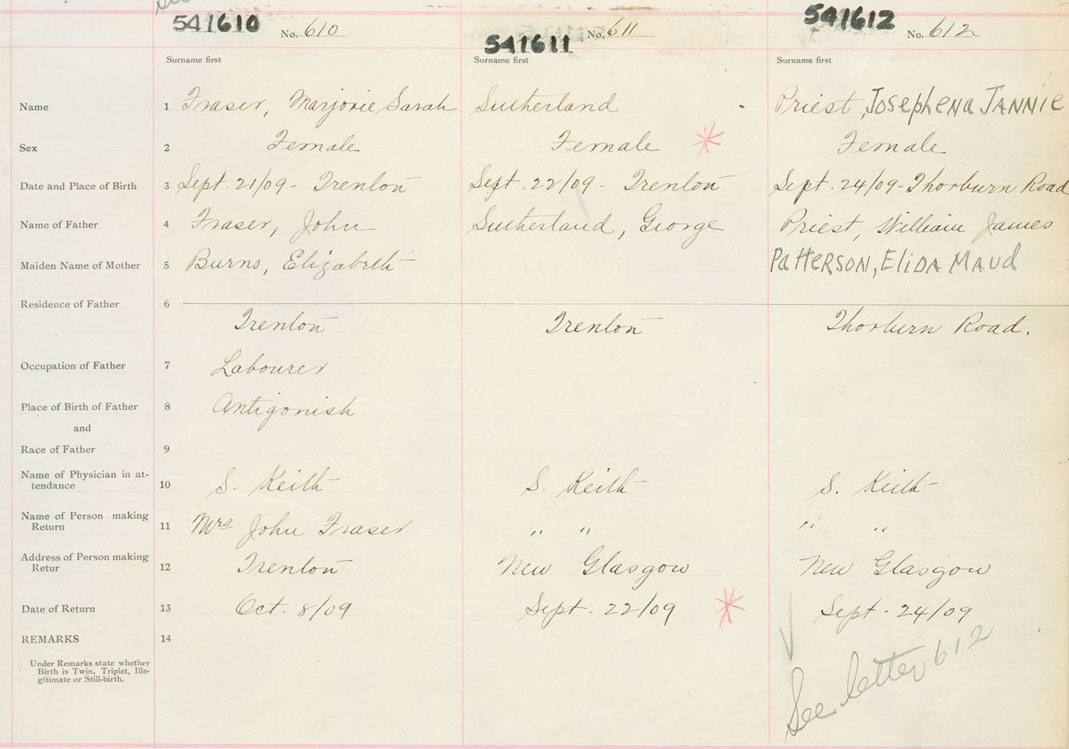 541610 No. 610 541611 No. 611 541612 No. 612
Surname first Surname first Surname first
Name 1 Fraser, Marjorie Sarah Sutherland Priest, Josephena JANNIE
Sex 2 Female Female Female
Date and Place of Birth 3 Sept. 21/09 - Trenton Sept. 22/09 - Trenton Sept. 24/09 - Thorburn Road
Name of Father 4 Fraser, John Sutherland, George Priest, William James
Maiden Name of Mother 5 Burns, Elizabeth PATTERSON, ELIDA MAUD
Residence of Father 6
Trenton Trenton Thorburn Road.
Occupation of Father 7 Labourer
Place of Birth of Father 8 Antigonish
and
Race of Father 9
Name of Physician in at-
tendance 10 S. Keith S. Keith S. Keith
Name of Person making
Return 11 Mrs John Fraser " " " "
Address of Person making
Retur 12 Trenton New Glasgow New Glasgow
Date of Return 13 Oct. 8/09 Sept. 22/09 Sept - 24/09
REMARKS 14
Under Remarks state whether
Birth is Twin, Triplet, Ille-
gitimate or Still-birth.
See letter 612